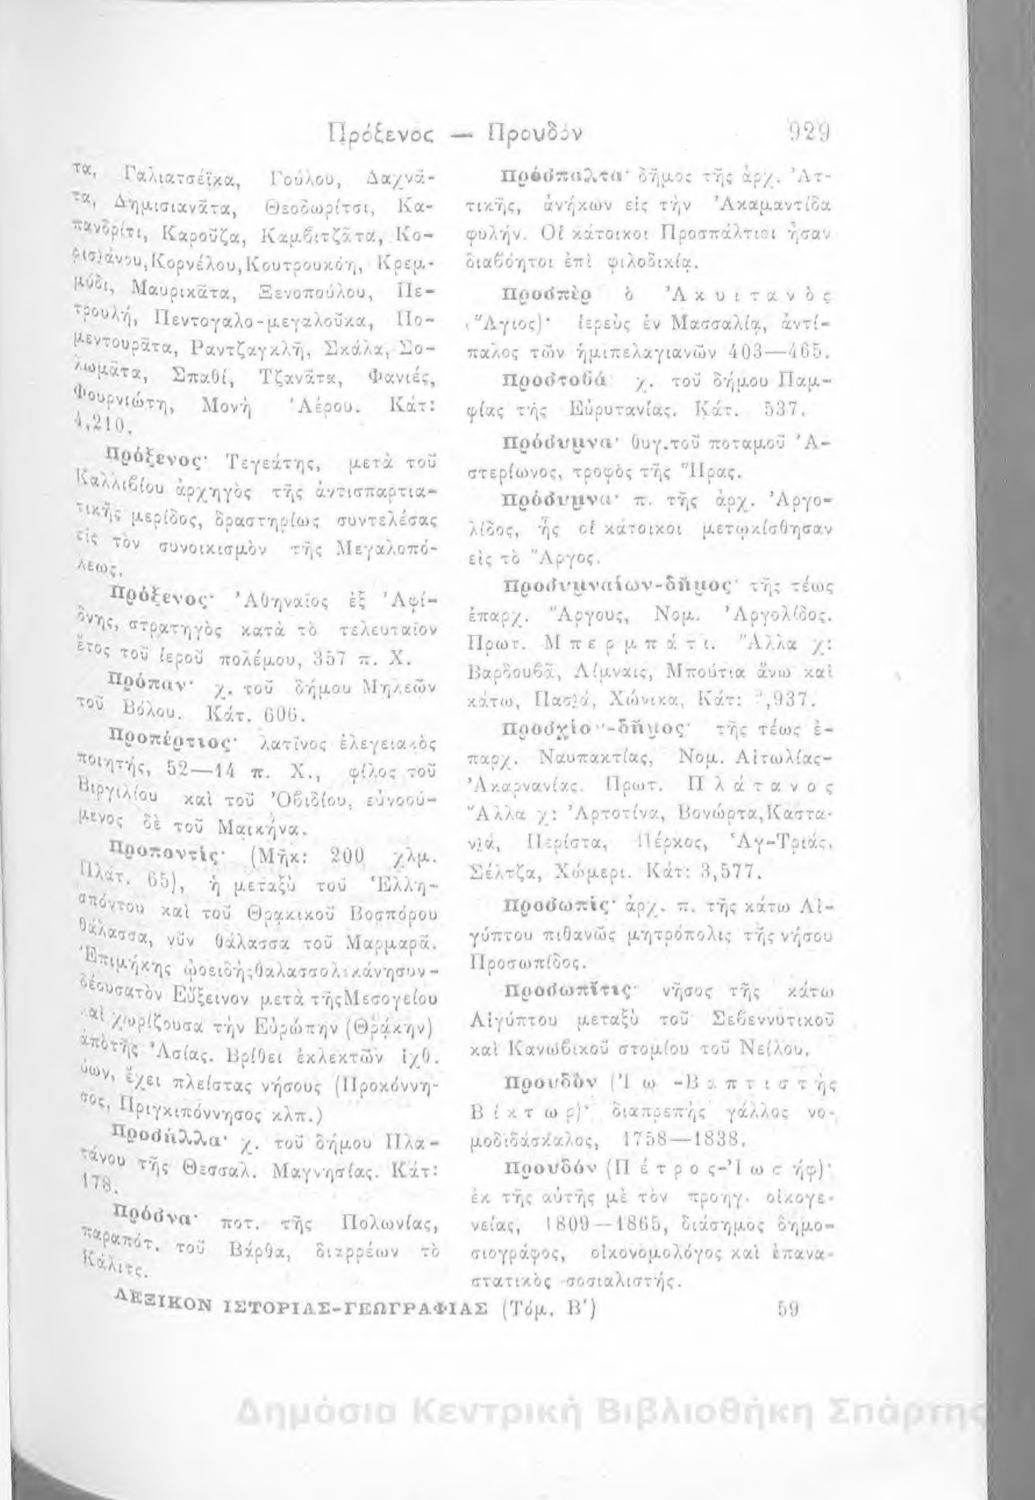 Πρόξενος — Προυδόν 929
τα, Γαλιατσέϊκα, Γούλου, Δαχνά-
τα, Δημισιανᾶτα, Θεοδωρίτσι, Κα-
πανδρίτι, Καροῦζα, Καμβιτζᾶτα, Κο-
Κορνέλου, Κουτρουκόη, Κρεμ-
μύδι, Μαυρικᾶτα, Ξενοπούλου, Πε-
τρουλῆ, Πεντογαλο-μεγαλοῦκα, Πο-
μεντουρᾶτα, Ραντζαγκλῆ, Σκάλα, Σο-
λωμᾶτα, Σπαθί, Τζανᾶτα, Φανιές,
Φουρνιώτη, Μονὴ Ἀέρου. Κάτ:
4,210.
Πρόξενος· Τεγεάτης, μετὰ τοῦ
Καλλιβίου ἀρχηγὸς τῆς ἀντισπαρτια-
τικῆς μερίδος, δραστηρίως συντελέσας
εἰς τὸν συνοικισμὸν τῆς Μεγαλοπό-
λεως.
Πρόξενος· Ἀθηναῖος ἐξ Ἀφί-
δνης, στρατηγὸς κατὰ τὸ τελευταῖον
ἔτος τοῦ ἱεροῦ πολέμου, 357 π. Χ.
Πρόπαν· χ. τοῦ δήμου Μηλεῶν
τοῦ Βόλου. Κάτ. 606.
Προπέρτιος· λατῖνος ἐλεγειακὸς
ποιητής, 52—14 π. Χ., φίλος τοῦ
Βιργιλίου καὶ τοῦ Ὀβιδίου, εὐνοού-
μενος δὲ τοῦ Μαικήνα.
Προποντίς· (Μῆκ: 200 χλμ.
Πλάτ. 65), ἡ μεταξὺ τοῦ Ἑλλη-
σπόντου καὶ τοῦ Θρᾳκικοῦ Βοσπόρου
θάλασσα, νῦν θάλασσα τοῦ Μαρμαρᾶ.
Ἐπιμήκης ᾠοειδὴς θαλασσολεκάνη συν-
δέουσα τὸν Εὔξεινον μετὰ τῆς Μεσογείου
καὶ χωρίζουσα τὴν Εὐρώπην (Θρᾴκην)
ἀπὸ τῆς Ἀσίας. Βρίθει ἐκλεκτῶν ἰχθ.
ύων, ἔχει πλείστας νήσους (Προκόννη-
σος, Πριγκιπόννησος κλπ.)
Προσήλλα· χ. τοῦ δήμου Πλα-
τάνου τῆς Θεσσαλ. Μαγνησίας. Κάτ:
178.
Πρόσνα· ποτ. τῆς Πολωνίας,
παραπότ. τοῦ Βάρθα, διαρρέων τὸ
Κάλιτς.
Πρόσπαλτα· δῆμος τῆς ἀρχ. Ἀτ-
τικῆς, ἀνήκων εἰς τὴν Ἀκαμαντίδα
φυλήν. Οἱ κάτοικοι Προσπάλτιοι ἦσαν
διαβόητοι ἐπὶ φιλοδικίᾳ.
Προσπὲρ ὁ Ἀκυιτανὸς
(Ἅγιος)· ἱερεὺς ἐν Μασσαλίᾳ, ἀντί-
παλος τῶν ἡμιπελαγιανῶν 403—465.
Προστοβά· χ. τοῦ δήμου Παμ-
φίας τῆς Εὐρυτανίας. Κάτ. 537.
Πρόσυμνα· θυγ. τοῦ ποταμοῦ Ἀ-
στερίωνος, τροφὸς τῆς Ἥρας.
Πρόσυμνα· π. τῆς ἀρχ. Ἀργο-
λίδος, ἧς οἱ κάτοικοι μετῳκίσθησαν
εἰς τὸ Ἄργος.
Προσυμναίων-δῆμος· τῆς τέως
ἐπαρχ. Ἄργους, Νομ. Ἀργολίδος.
Πρωτ. Μπερμπάτι. Ἄλλα χ:
Βαρδουβᾶ, Λίμναις, Μπούτια ἄνω καὶ
κάτω, Πασιά, Χώνικα, Κάτ: ,937.
Προσχίου-δῆμος· τῆς τέως ἐ-
παρχ. Ναυπακτίας, Νομ. Αἰτωλίας-
Ἀκαρνανίας. Πρωτ. Πλάτανος
Ἄλλα χ: Ἀρτοτίνα, Βονώρτα, Καστα-
νιά, Περίστα, Πέρκος, Ἁγ-Τριάς,
Σέλτζα, Χώμερι. Κάτ: 3,577.
Προσωπίς· ἀρχ. π. τῆς κάτω Αἰ-
γύπτου πιθανῶς μητρόπολις τῆς νήσου
Προσωπίδος.
Προσωπῖτις· νῆσος τῆς κάτω
Αἰγύπτου μεταξὺ τοῦ Σεβεννυτικοῦ
καὶ Κανωβικοῦ στομίου τοῦ Νείλου.
Προυδὸν (Ἰω-Βαπτιστὴς
Βίκτωρ)· διαπρεπὴς γάλλος νο-
μοδιδάσκαλος, 1758—1838.
Προυδόν (Πέτρος-Ἰωσήφ)·
ἐκ τῆς αὐτῆς μὲ τὸν προηγ. οἰκογε-
νείας, 1809—1865, διάσημος δημο-
σιογράφος, οἰκονομολόγος καὶ ἐπανα-
στατικὸς σοσιαλιστής.
ΛΕΞΙΚΟΝ ΙΣΤΟΡΙΑΣ-ΓΕΩΓΡΑΦΙΑΣ (Τόμ. Β') 59
Δημόσια Κεντρική Βιβλιοθήκη Σπάρτης